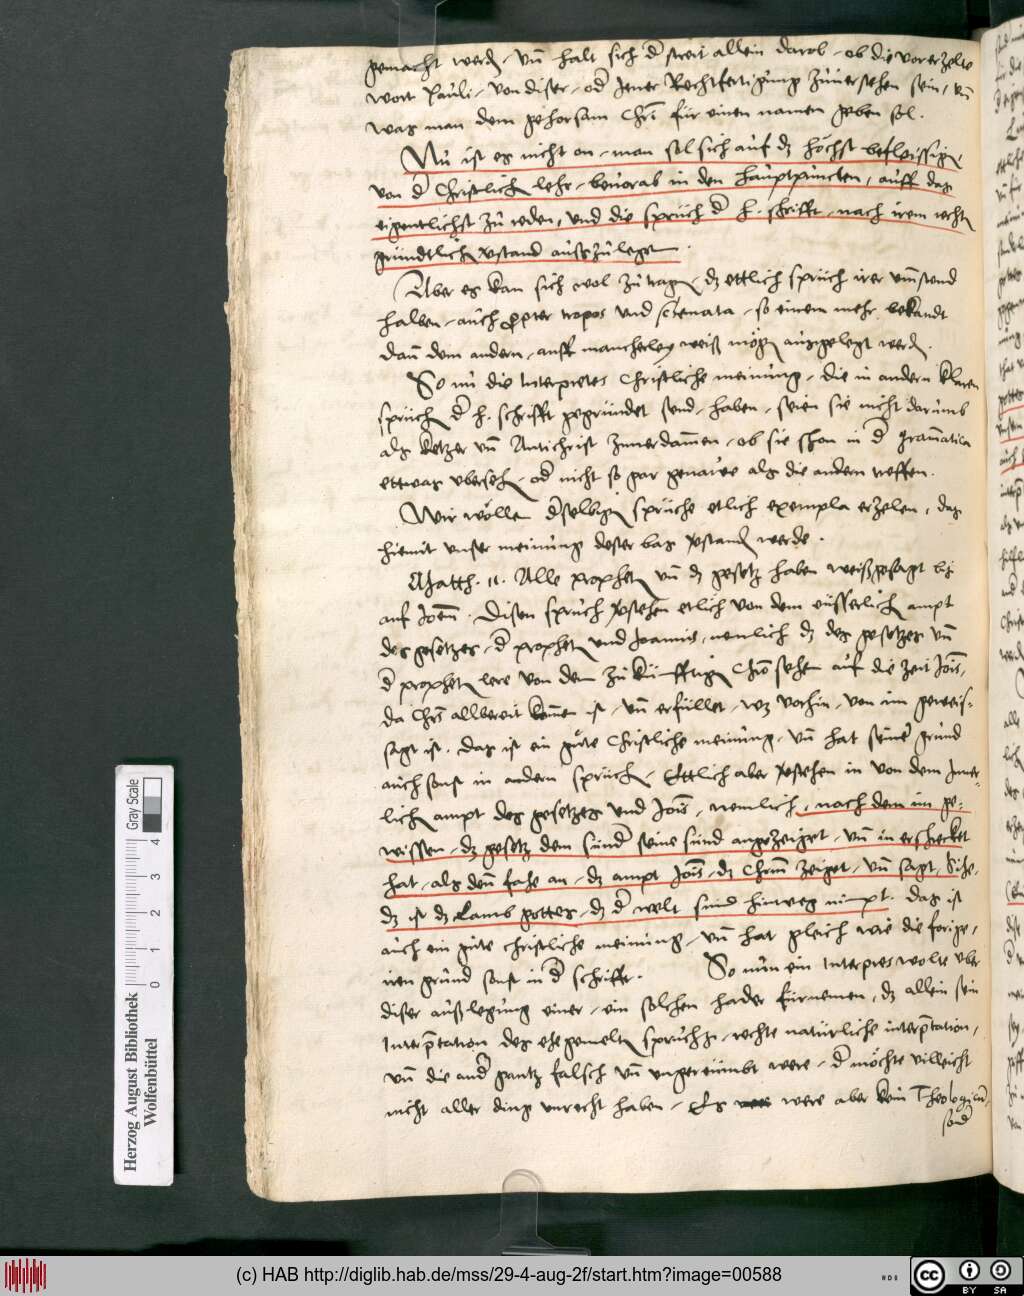 gemacht werden, vnd halt sich d streit allein darob, ob die vorerzelte
wort Pauli, von diser, od Jener Rechtfertigung zuuersehen sein, vn
was man dem gehorsam Chri für einen namen geben sol.
Nu ist es nicht on, man sol sich auf dz höchst befleissigen,
von d Christlichen lehr, beuorab in den hauptpuncten, auff das
eigentlichst zu reden, vnd die sprüch d h. schrifft, nach irem rechten
gründtlichen verstand außzulegen.
Aber es kan sich wol zutragen, dz ettlich sprüch irer vmbstend
halben, auch propter tropos vnd schemata, so einem mehr bekandt
dann dem andern, auff mancherley weiß mögen ausgelegt werden.
So nu die Interpretes Christliche meinung, die in andern klaren
sprüchen d h. schrifft gegründet send, haben, seien sie nicht darumb
als ketzer vnn Antichrist zuuerdammen, ob sie schon in d Grammatica
ettwas vbersehen, od nicht so gar genawe als die andern treffen.
Wir wöllen dselbigen sprüche etlich exempla erzelen, das
hiemit vnser meinung dester bas verstanden werde.
Matth. 11. Alle propheten vnn dz gesetz haben weißgesagt biß
auf Joen. Disen spruch verstehen etlich von dem eüsserlichen ampt
des gesetzes, d propheten vnd Joannis, nemlich dz des gesetzes vnn
d propheten lere von dem zukünfftigen Chro sehen auf die zeit Jois,
da Chrs allbereit komen ist, vnn erfüllet, wz vorhin, von im geweis-
sagt ist. das ist ein gute Christliche meinung, vnn hat seinen grund
auch sonst in andern sprüchen. Ettlich aber verstehen in von dem Inner-
lichen ampt des gesetzes vnd Jois, nemlich, nach dem im ge-
wissen, dz gesetz dem sünder seine sünd angezeiget, vnn in erschecket
hat, als denn fahe an, dz ampt Jois, dz Chrum zeiget, vnn sagt, Sihe,
dz ist dz Lamb gottes, dz d welt sünd hinweg nimpt. das ist
auch ein gute christliche meinung, vnn hat gleich wie die forige,
iren grund sonst in d schrifft. So nun ein Interpres wolte vber
diser außlegung einer, ein solchen hader fürnemen, dz allein sein
Interpretation des ehegemelten spruchs, rechte natürliche interpretation,
vnn die ander gantz falsch vnn vngereümbt were, d möchte villeicht
nicht aller ding vnrecht haben, Es were aber kein Theologien,
sonder
Herzog August Bibliothek
Wolfenbüttel
Gray Scale
0 1 2 3 4
(c) HAB http://diglib.hab.de/mss/29-4-aug-2f/start.htm?image=00588
cc BY SA